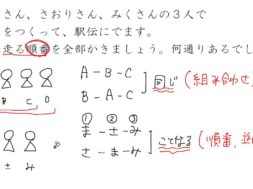 さん、さおりさん、みくさんの3人で
をつくって、駅伝にでます。
走る順番を全部かきましょう。何通りあるでし
A-B-C
B-A-C
同じ
(組み合わせ
B C D
① ② ③
ま-さ-み
さ-ま-み
ことなる
(順番,
さ み